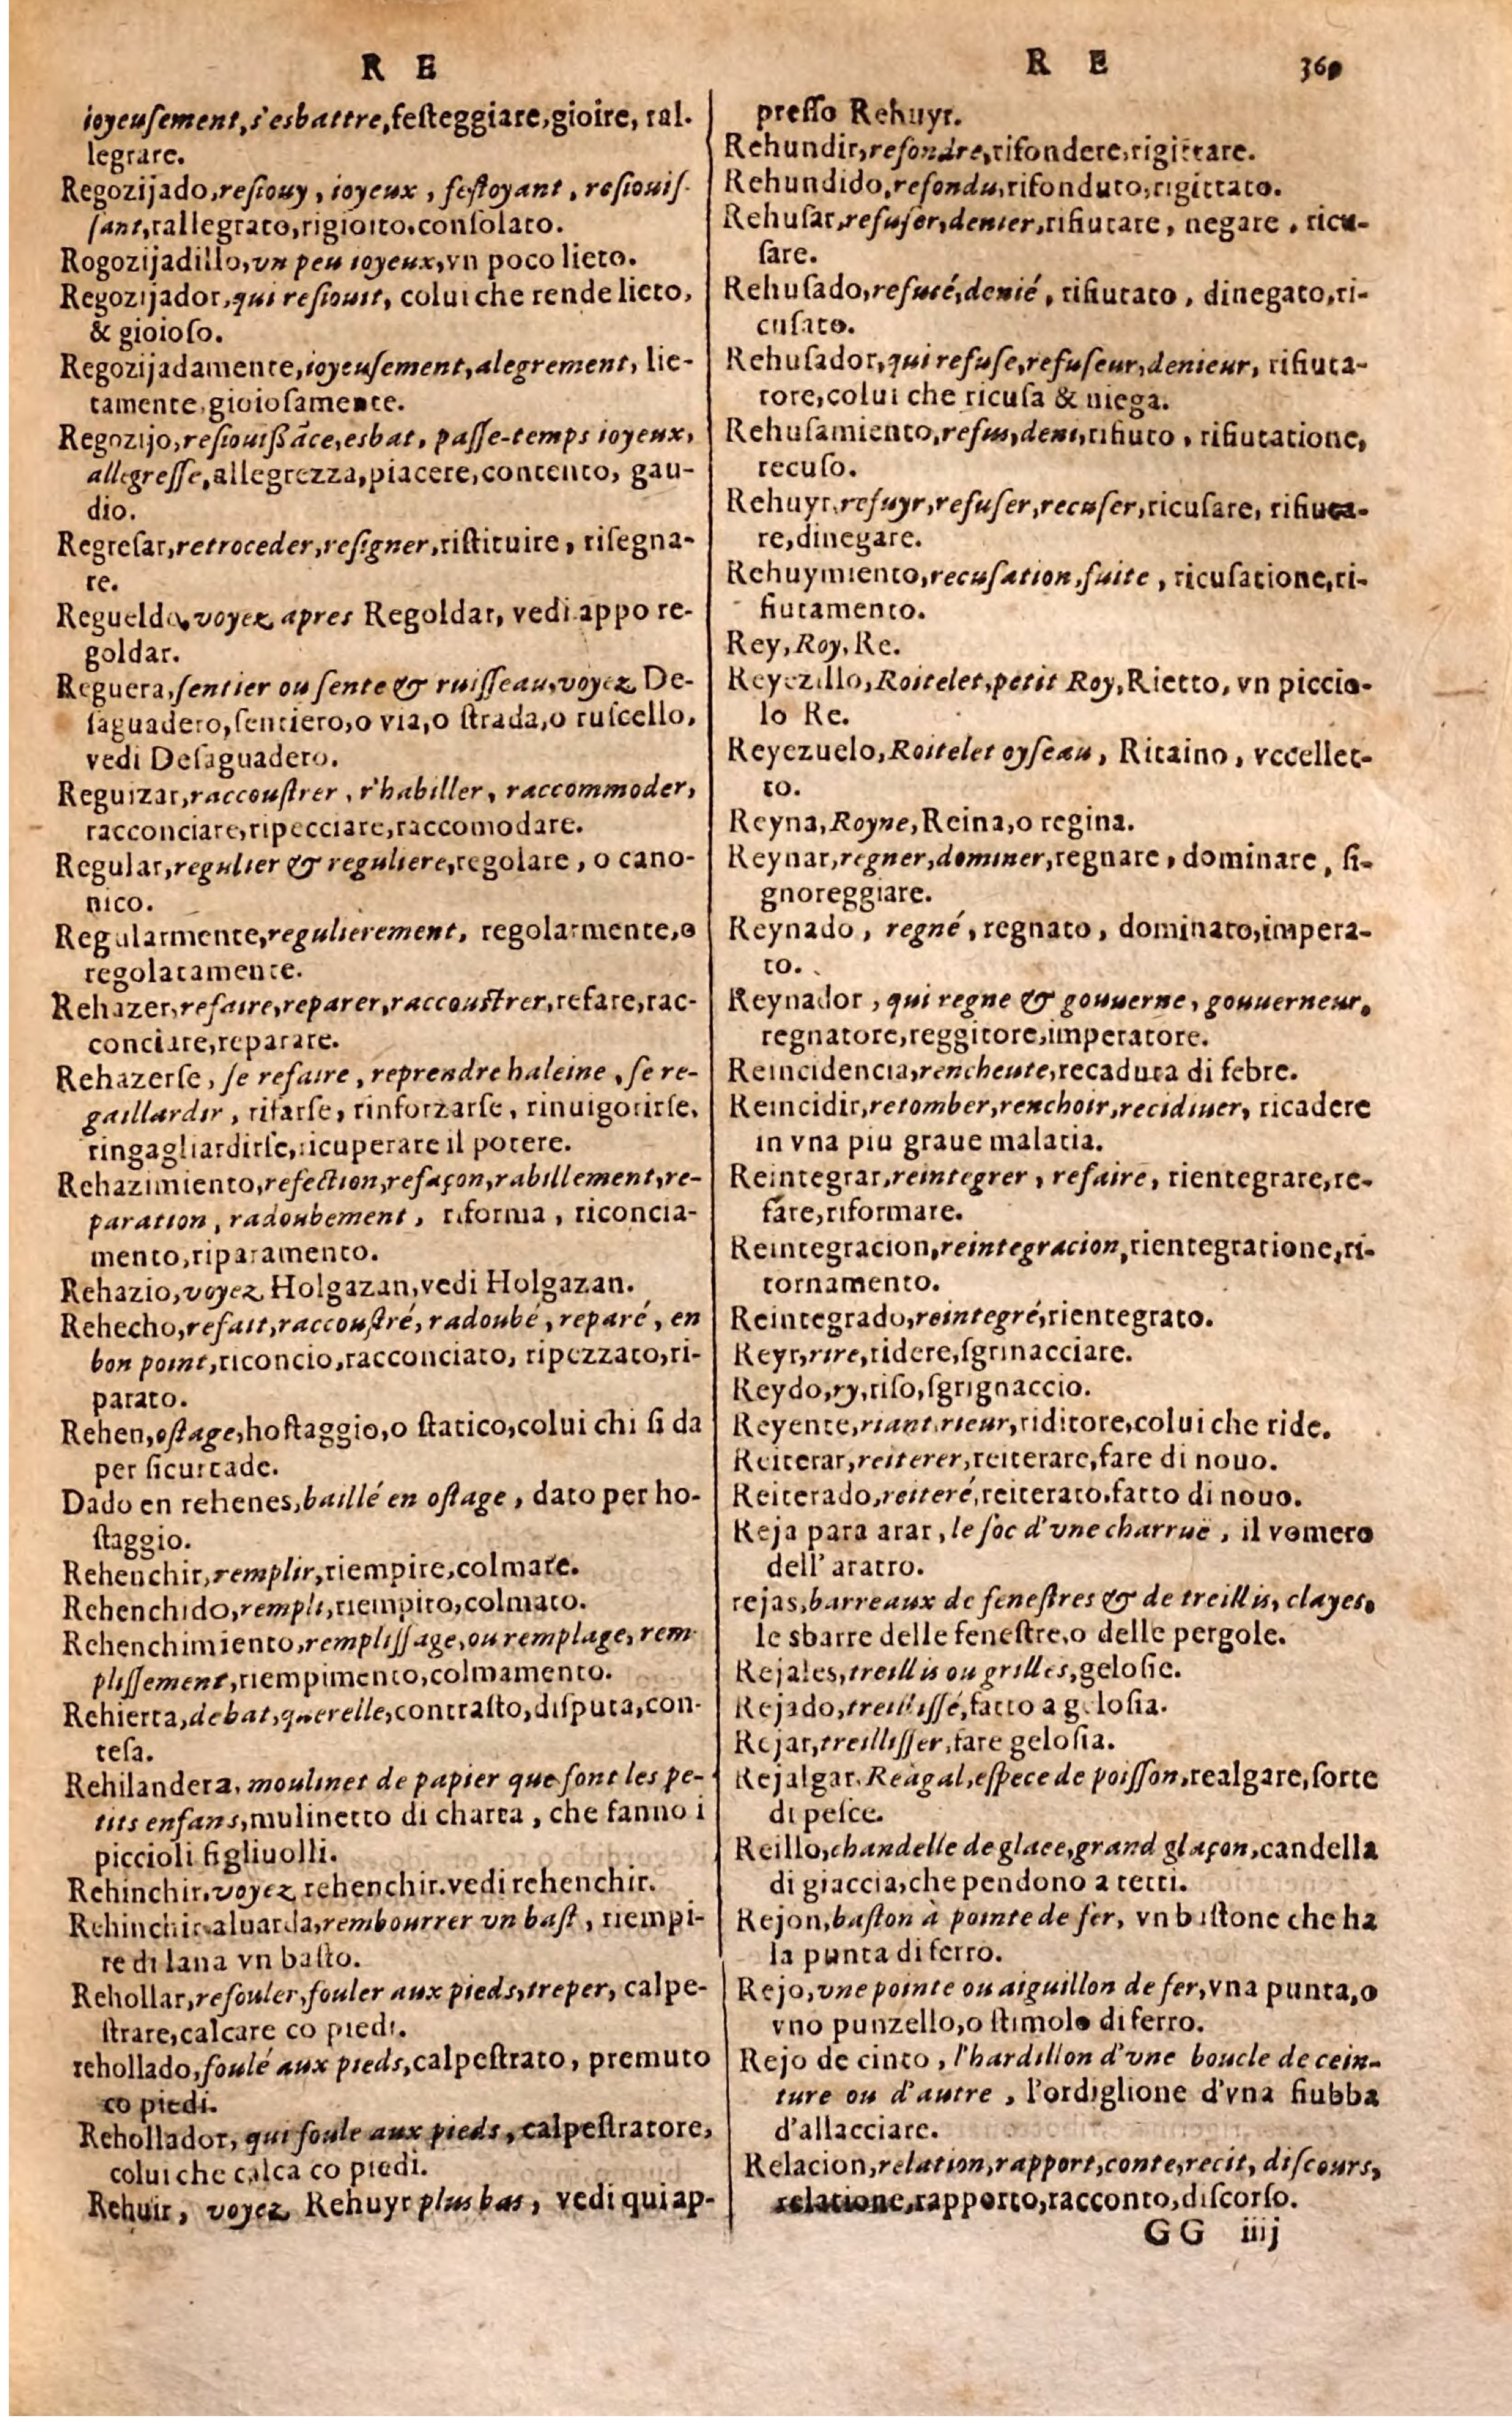 R E
ioyeuſement, s'esbattre, feſteggiare, gioire, ral.
legrare.
Regozijado, reſiouy, ioyeux, feſtoyant, reſiouiſ-
ſant, rallegrato, rigioito, conſolato.
Rogozijadillo, vn peu ioyeux, vn poco lieto.
Regozijador, qui reſiouit, colui che rende lieto,
& gioioſo.
Regozijadamente, ioyeuſement, alegrement, lie-
tamente, gioioſamente.
Regozijo, reſiouiſſãce, esbat, paſſe-temps ioyeux,
allegreſſe, allegrezza, piacere, contento, gau-
dio.
Regreſar, retroceder, reſigner, riſtituire, riſegna-
re.
Regueldo, voyez apres Regoldar, vedi appo re-
goldar.
Reguera, ſentier ou ſente & ruiſſeau, voyez De-
ſaguadero, ſentiero, o via, o ſtrada, o ruſcello,
vedi Deſaguadero.
Reguizar, raccouſtrer, r'habiller, raccommoder,
racconciare, ripecciare, raccomodare.
Regular, regulier & reguliere, regolare, o cano-
nico.
Regularmente, regulierement, regolarmente, o
regolatamente.
Rehazer, refaire, reparer, raccouſtrer, refare, rac-
conciare, reparare.
Rehazerſe, ſe refaire, reprendre haleine, ſe re-
gaillardir, rifarſe, rinforzarſe, rinuigorirſe,
ringagliardirſe, ricuperare il potere.
Rehazimiento, refection, refaçon, rabillement, re-
paration, radoubement, riforma, riconcia-
mento, riparamento.
Rehazio, voyez Holgazan, vedi Holgazan.
Rehecho, refait, raccouſtré, radoubé, reparé, en
bon point, riconcio, racconciato, ripezzato, ri-
parato.
Rehen, oſtage, hoſtaggio, o ſtatico, colui chi ſi da
per ſicurtade.
Dado en rehenes, baillé en oſtage, dato per ho-
ſtaggio.
Rehenchir, remplir, riempire, colmare.
Rehenchido, rempli, riempito, colmato.
Rehenchimiento, rempliſſage, ou remplage, rem-
pliſſement, riempimento, colmamento.
Rehierta, debat, querelle, contraſto, diſputa, con-
teſa.
Rehilandera, moulinet de papier que font les pe-
tits enfans, mulinetto di charta, che fanno i
piccioli figliuolli.
Rehinchir, voyez rehenchir. vedi rehenchir.
Rehinchir aluarda, rembourrer vn baſt, riempi-
re di lana vn baſto.
Rehollar, refouler, fouler aux pieds, treper, calpe-
ſtrare, calcare co piedi.
rehollado, foulé aux pieds, calpeſtrato, premuto
co piedi.
Rehollador, qui foule aux pieds, calpeſtratore,
colui che calca co piedi.
Rehuir, voyez Rehuyr plus bas, vedi qui ap-
R E 36
preſſo Rehuyr.
Rehundir, refondre, rifondere, rigittare.
Rehundido, refondu, rifonduto, rigittato.
Rehuſar, refuſer, denier, rifiutare, negare, ricu-
ſare.
Rehuſado, refuté, denié, rifiutato, dinegato, ri-
cuſato.
Rehuſador, qui refuſe, refuſeur, denieur, rifiuta-
tore, colui che ricuſa & niega.
Rehuſamiento, refus, deni, rifiuto, rifiutatione,
recuſo.
Rehuyr, refuyr, refuſer, recuſer, ricuſare, rifiuta-
re, dinegare.
Rehuymiento, recuſation, fuite, ricuſatione, ri-
fiutamento.
Rey, Roy, Re.
Reyezillo, Roitelet, petit Roy, Rietto, vn piccio-
lo Re.
Reyezuelo, Roitelet oyſeau, Ritaino, vccellet-
to.
Reyna, Royne, Reina, o regina.
Reynar, regner, dominer, regnare, dominare, ſi-
gnoreggiare.
Reynado, regné, regnato, dominato, impera-
to.
Reynador, qui regne & gouuerne, gouuerneur,
regnatore, reggitore, imperatore.
Reincidencia, rencheute, recaduta di febre.
Reincidir, retomber, renchoir, recidiuer, ricadere
in vna piu graue malatia.
Reintegrar, reintegrer, refaire, rientegrare, re-
fare, riformare.
Reintegracion, reintegracion, rientegratione, ri-
tornamento.
Reintegrado, reintegré, rientegrato.
Reyr, rire, ridere, ſgrinacciare.
Reydo, ry, riſo, ſgrignaccio.
Reyente, riant, rieur, riditore, colui che ride.
Reiterar, reiterer, reiterare, fare di nouo.
Reiterado, reiteré, reiterato, fatto di nouo.
Reja para arar, le ſoc d'vne charruë, il vomero
dell' aratro.
rejas, barreaux de feneſtres & de treillis, clayes,
le sbarre delle feneſtre, o delle pergole.
Rejales, treillis ou grilles, geloſie.
Rejado, treilliſſé, fatto a geloſia.
Rejar, treilliſſer, fare geloſia.
Rejalgar, Reagal, eſpece de poiſſon, realgare, ſorte
di peſce.
Reillo, chandelle de glace, grand glaçon, candella
di giaccia, che pendono a tetti.
Rejon, baſton à pointe de fer, vn baſtone che ha
la punta di ferro.
Rejo, vne pointe ou aiguillon de fer, vna punta, o
vno punzello, o ſtimolo di ferro.
Rejo de cinto, l'hardillon d'vne boucle de cein-
ture ou d'autre, l'ordiglione d'vna fiubba
d'allacciare.
Relacion, relation, rapport, conte, recit, diſcours,
relatione, rapporto, racconto, diſcorſo.
GG iiij